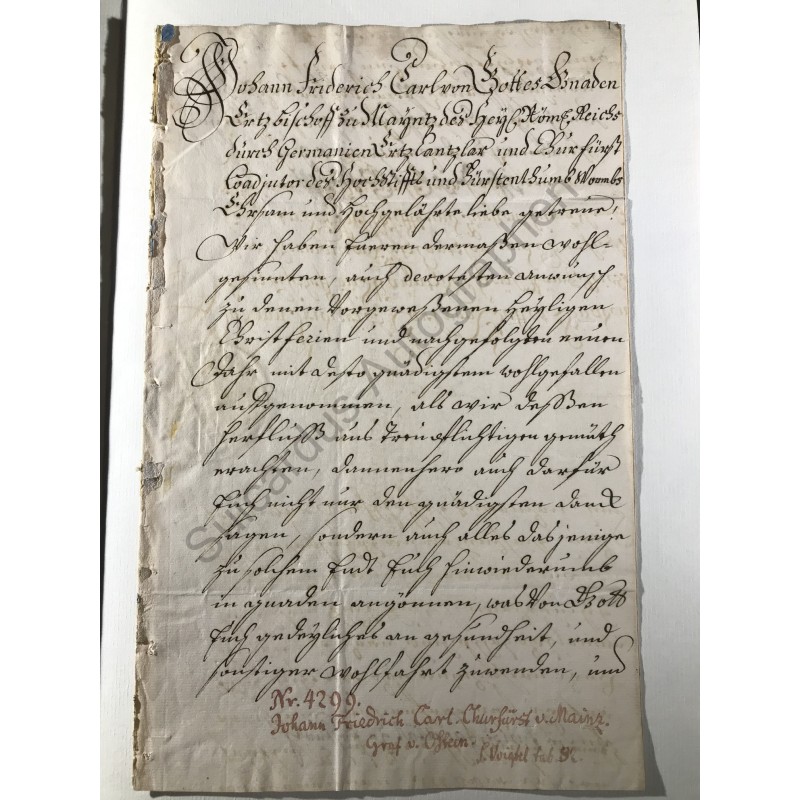 Johann Friderich Carl von Gottes Gnaden
Ertzbischoff zu Mayntz des Heyl. Röm. Reichs
durch Germanien Ertzcantzlar und Churfürst
Coadjutor des Hochstiffts und Fürstenthumbs Wormbs
Ehrsam und Hochgelährte liebe getreue!
Wir haben Eueren dermaßen wohl-
gesinnten, auch devotesten anwunsch
zu denen Vorgeweßenen Heyligen
Christferien und nachgefolgten neuen
Jahr mit desto gnädigstem wohlgefallen
aufgenommen, als wir deßen
herfluß aus Treupflichtigen gemüth
erachten, dannenhero auch darfür
Euch nicht nur den gnädigsten danck
sagen, sondern auch alles dasjenige
zu solchem Endt Euch hinwiederumb
in gnaden angönnen, was Von Gott
Euch gedeyliches an gesundheit, und
sonstiger wohlfahrt zuwenden, und
Nr. 4299.
Johann Friedrich Carl Churfürst v. Mainz.
Graf v. Ostein.
Suicardus Autographen